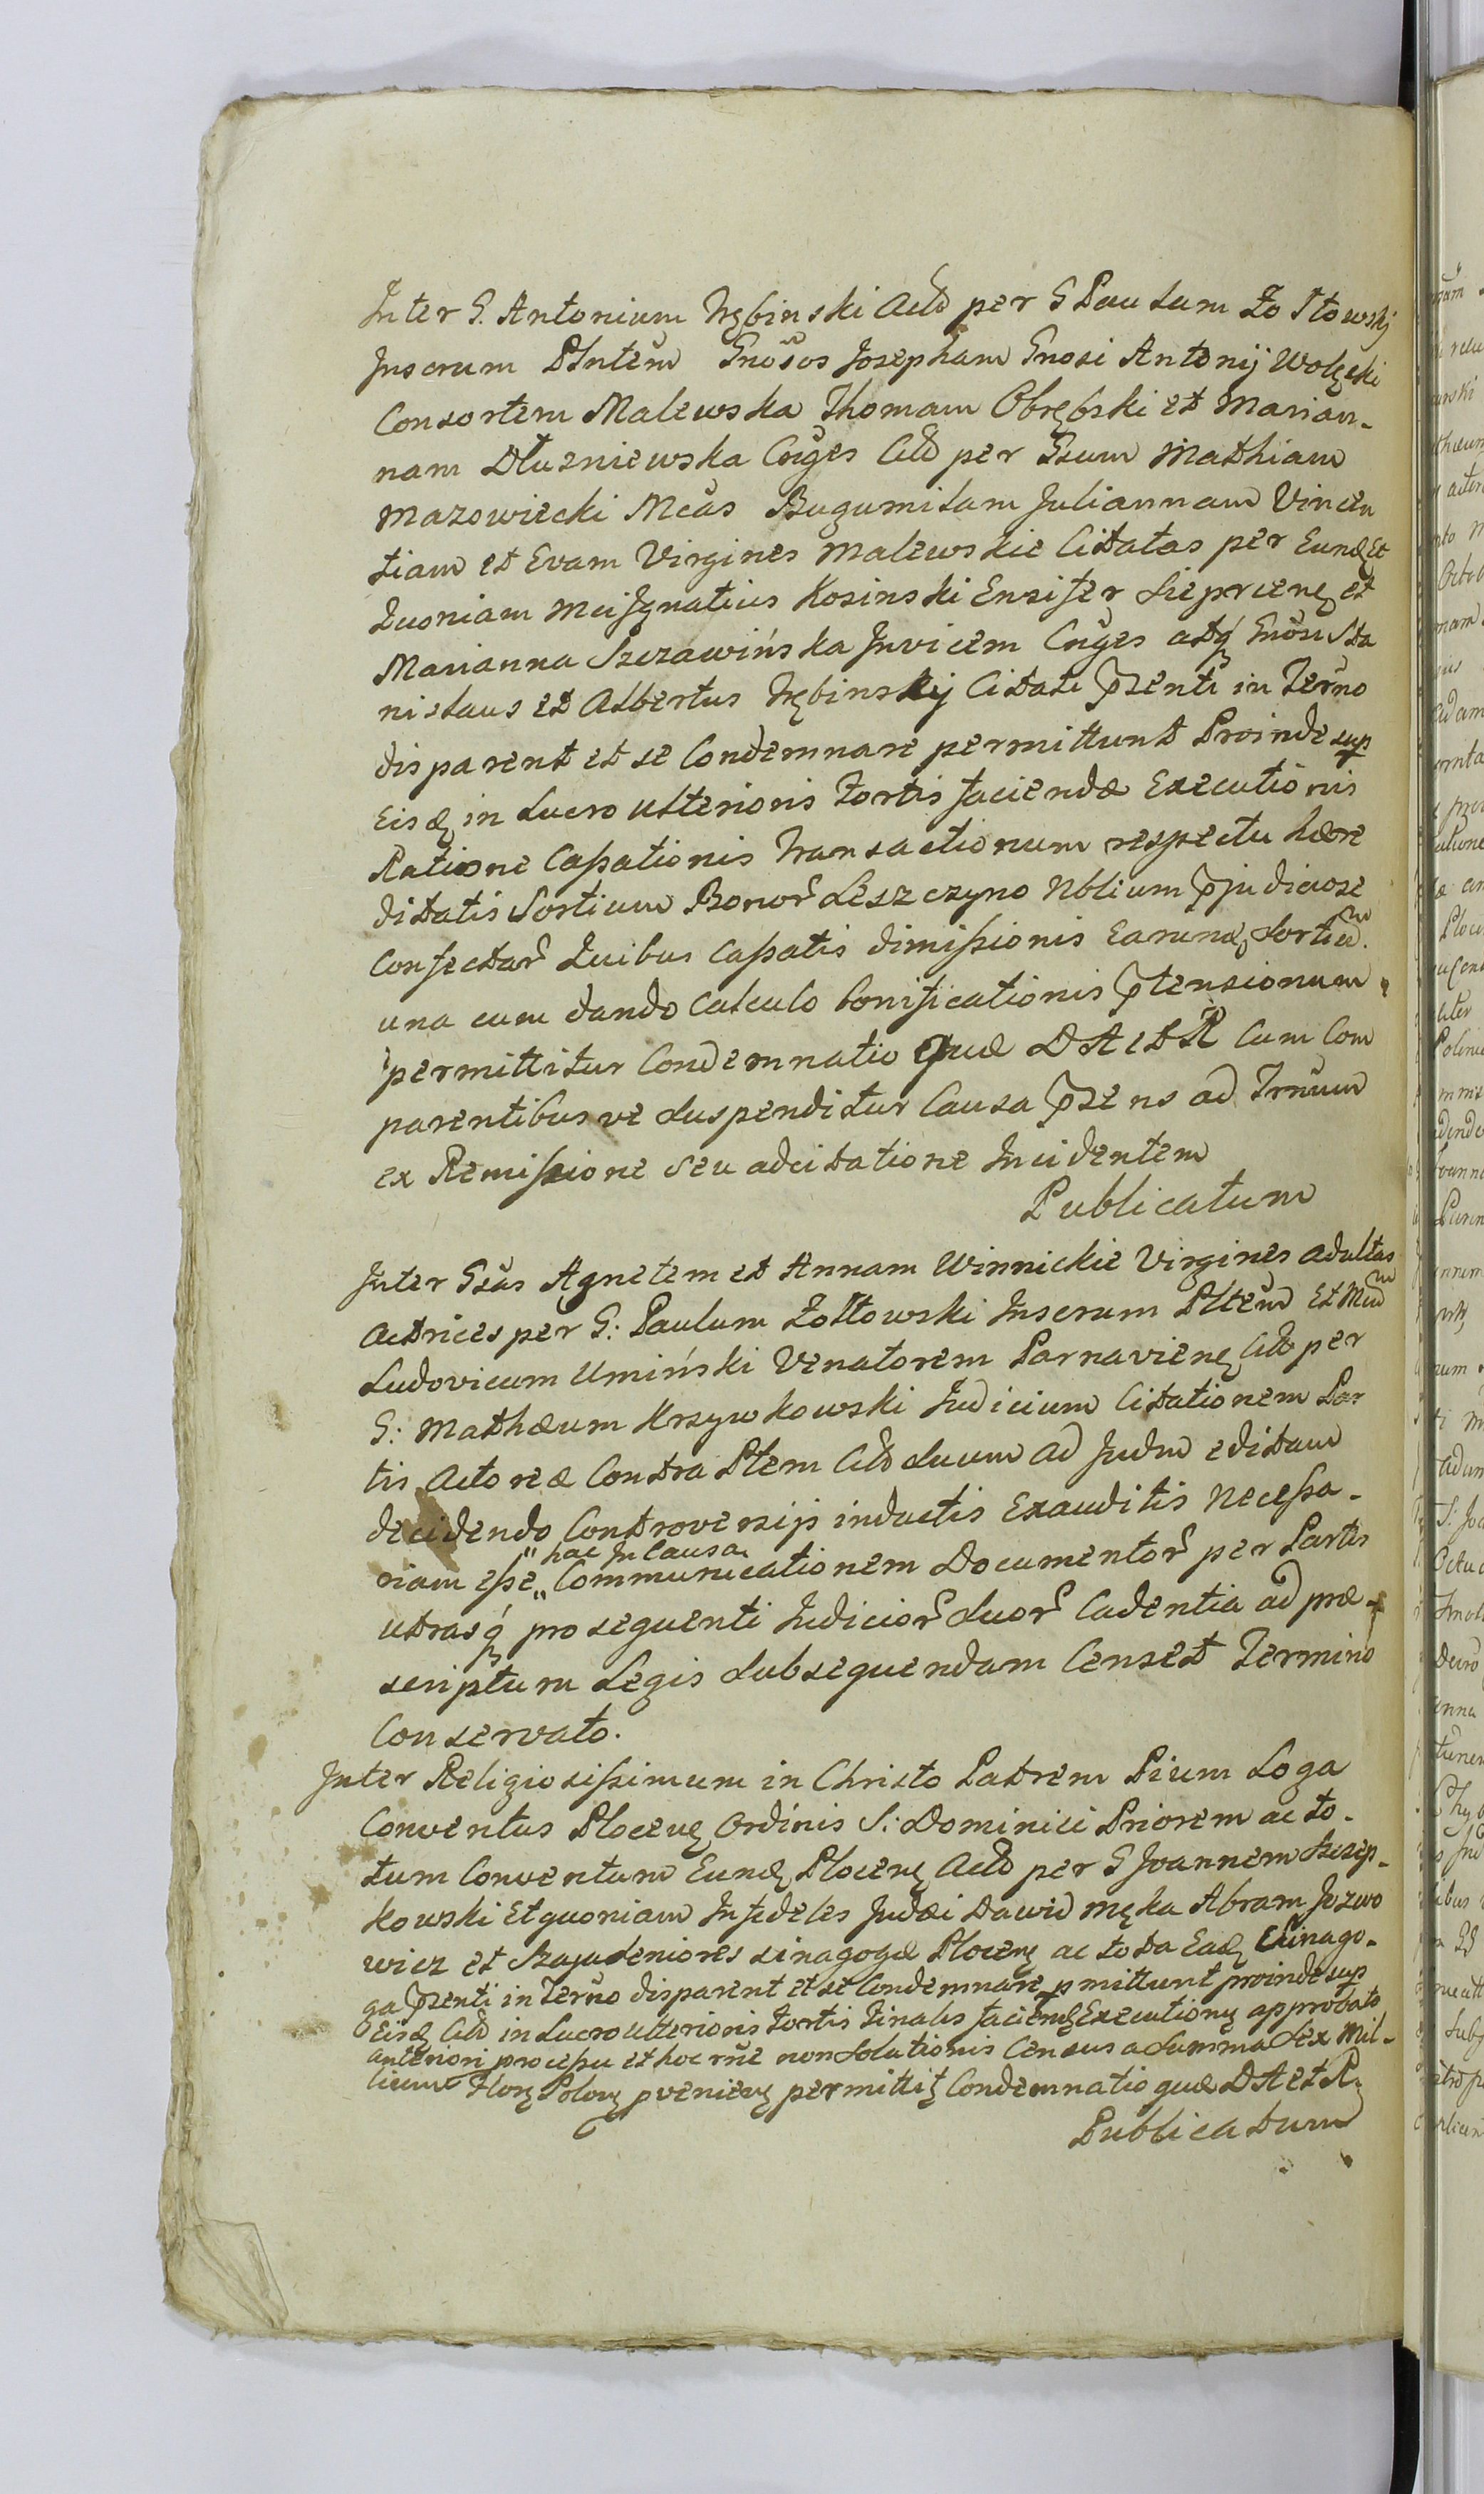 Inter G. Antonium Trębinski Actō per G Paulum Żołtowskj
Juscrum Plntēm Gnōsos Josepham Gnosi Antonij Wolęcki
Consortem Malewska Thomam Obrębski et Marian-
nam Dłuzniewska Cnges Citō per Gsum Mathiam
Mazowiecki Mcas Bugumilam Juliannam Vincen
tiam et Evam Virgines Malewskie Citatas per Eund Et
Quoniam Mci Ignatius Kosinski Ensifer Sieprcens et
Marianna Szczawińska Invicem Cnges atq Gnosi Sta
nislaus et Albertus Trębinskij Citati pzenti in Terno
disparent et se Condemnare permittunt Proinde sup
Eisd in Lucro ulterioris Fortis faciendæ Executionis
Ratione Cassationis Transactionum respectu hære
ditatis Sortium Bonor Leszczyno Nblium pjudiciose
Confectar Quibus Cassatis dimissionis Earund Sortiū
una cum dando Calculo bonificationis ptensionum
permittitur Condemnatio Quæ DA et R Cum Com
parentibus ve suspenditur Causa pzens ad Trnum
ex Remissione seu adcitatione Incidentem
Publicatum
Inter Gsas Agnetem et Annam Winnickie Virgines adultas
Actrices per G: Paulum Żołtowski Juscrum Pltem Et Mcum
Ludovicum Umiński Venatorem Parnaviens Citō per
G: Mathæum Krzywkowski Judicium Citationem Par
tis Actoreæ Contra Ptem Citō Suum ad Judm editam
decidendo Controversijs inductis Exauditis Necessa-
riam esse " hac In Causa " Communicationem Documentor per Partes
utrasq pro sequenti Judicior Suor Cadentia ad præ-
scriptum Legis Subsequendam Censet Termino
Conservato.
Inter Religiosissimum in Christo Patrem Pium Loga
Conventus Plocens Ordinis S: Dominici Priorem ac to-
tum Conventum Eund Plocens Actō per G Joannem Szczep-
kowski Et quoniam Infideles Judæi Dawid Męka Abram Jozwo
wicz et Szaja Seniores Sinagogæ Plocens ac tota Ead Sinago-
ga pzenti in Terno disparent et se Condemnare pmittunt proinde sup
Eisd Citō in Lucro ulterioris Fortis Finalis faciend Executionis approbato
anteriori processu et hoc rne non Solutionis Census a Summa Sex Mil-
lium Flor Polon pveniens permittit Condemnatio quæ DA et R
Publicatum